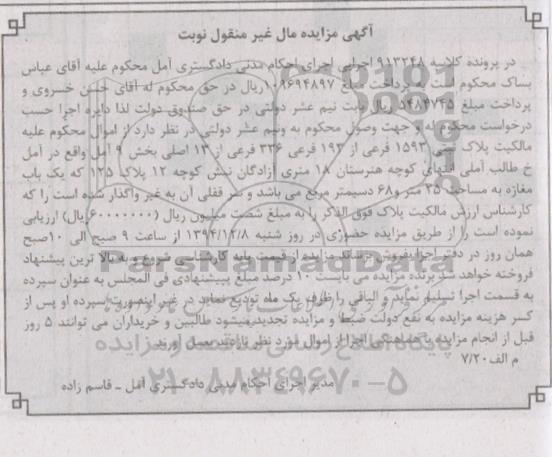 آگهی مزایده مال غیر منقول نوبت
در پرونده کلاسه ۹۱۳۲۴۸ اجرایی اجرای احکام مدنی دادگستری آمل محکوم علیه آقای عباس
بساک محکوم است به پرداخت مبلغ ۱۰۹۶۹۴۸۹۷ ریال در حق محکوم له آقای حسن خسروی و
پرداخت مبلغ ۵۴۸۴۷۴۵ ریال بابت نیم عشر دولتی در حق صندوق دولت لذا دایره اجرا حسب
درخواست محکوم له و جهت وصول محکوم به ونیم عشر دولتی در نظر دارد از اموال محکوم علیه
مالکیت پلاک ثبتی ۱۵۹۳ فرعی از ۱۹۲ فرعی ۳۳۶ فرعی از ۱۳ اصلی بخش ۹ آمل واقع در آمل
خ طالب آملی انتهای کوچه هنرستان ۱۸ متری آزادگان نبش کوچه ۱۲ پلاک ۱۲۵ که یک باب
مغازه به مساحت ۲۵ متر و۶۸ دسیمتر مربع می باشد و سر قفلی آن به غیر واگذار شده است را که
کارشناس ارزش مالکیت پلاک فوق الذکر را به مبلغ شصت میلیون ریال (۶۰۰۰۰۰۰۰ریال) ارزیابی
نموده است را از طریق مزایده حضوری در روز شنبه ۱۳۹۴/۱۲/۸ از ساعت ۹ صبح الی ۱۰صبح
همان روز در دفتر اجرا بفروش برساند مزایده از قیمت پایه کارشناسی شروع و به بالا ترین پیشنهاد
فروخته خواهد شد برنده مزایده می بایست ۱۰ درصد مبلغ پیشنهادی فی المجلس به عنوان سپرده
به قسمت اجرا تسلیم نماید و الباقی را ظرف یک ماه تودیع نماید در غیر اینصورت سپرده او پس از
کسر هزینه مزایده به نفع دولت ضبط و مزایده تجدید میشود طالبین و خریداران می توانند ۵ روز
قبل از انجام مزایده با هماهنگی اجرا از اموال مورد نظر بازدید بعمل آورند.
م الف۷/۲۰
مدیر اجرای احکام مدنی دادگستری آمل ـ قاسم زاده
ParsNamadData
۰۲۱-۸۸۳۴۹۶۷۰-۵